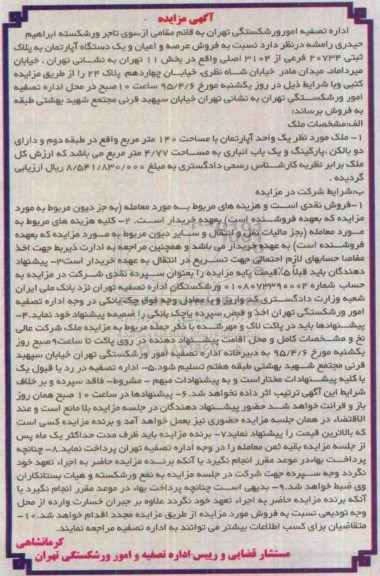 آگهی مزایده
اداره تصفیه امورورشکستگی تهران به قائم مقامی ازسوی تاجر ورشکسته ابراهیم
حیدری رامشه درنظر دارد نسبت به فروش عرصه و اعیان و یک دستگاه آپارتمان به پلاک
ثبتی ۲۰۷۳۴ فرعی از ۳۱۰۴ اصلی واقع در بخش ۱۱ تهران به نشانی تهران . خیابان
میرداماد، میدان مادر خیابان شاه نظری، خیابــان چهاردهم، پلاک ۲۴ را از طریق مزایده
کتبی وبا شرایط ذیل در روز یکشنبه مورخ ۹۵/۴/۶ ساعت ۱۰صبح در محل اداره تصفیه
امور ورشکســتگی تهران به نشانی تهران خیابان سپهبد قرنی مجتمع شهید بهشتی طبقه
به فروش برساند:
الف:مشخصات ملک
۱- ملک مورد نظر یک واحد آپارتمان با مساحت ۱۴۰ متر مربع واقع در طبقه دوم و دارای
دو بالکن ،پارکینگ و یک باب انباری به مســاحت ۴/۷۷ متر مربع می باشد که ارزش کل
ملک برابر نظریه کارشــناس رسمی دادگستری به مبلغ ۸/۵۴۱/۸۳۰/۰۰۰ ریال ارزیابی
گردیده .
ب:شرایط شرکت در مزایده
۱-فروش نقدی است و هزینه های مربوط بــه مورد معامله (به جز دیون مربوط به مورد
مزایده که بعهده فروشــنده است) بعهده خریدار اســت. ۲- کلیه هزینه های مربوط به
مورد معامله (بجز مالیات نقل و انتقال و ســایر دیون مربوط به مورد مزایده که بعهده
فروشــنده است) به عهده خریدار می باشد و همچنین مراجعه به ادارت ذیربط جهت اخذ
مفاصا حسابهای لازم احتمالی جهت تســریع در انتقال به عهده خریدار است۳- پیشنهاد
دهندگان باید قبلا ۵٪قیمت پایه مزایده را بعنوان سپرده نقدی شــرکت در مزایده به
حساب شماره ۰۱۰۸۰۷۳۳۹۰۰۰۴ ورشکستگان اداره تصفیه تهران نزد بانک ملی ایران
شعبه وزارت دادگستــری کد واریز و یا معادل وجه فوق چک بانکی در وجه اداره تصفیه
امور ورشکستگی تهران اخذ و قبض سپرده یاچک بانکی را ضمیمه پیشنهاد خود نماید.۴-
پیشنهادها باید در پاکت لاک و مهرشده با ذکر جمله مربوط به مزایده ملک شرکت عالی
نخ و مشخصات کامل و محل اقامت پیشنهاد دهنده در روی پاکت تا ساعت۹صبح روز
یکشنبه مورخ ۹۵/۴/۶ به دبیرخانه اداره تصفیه امور ورشکستگی تهران خیابان سپهبد
قرنی مجتمع شهید بهشتی طبقه هفتم تسلیم شود.۵- اداره تصفیه در رد یا قبول یک
یا کلیه پیشنهادات مختاراست و به پیشنهادات مبهم - مشروط- فاقد سپرده و بر خلاف
شرایط این آگهی ترتیب اثر داده نخواهد شد.۶- پیشنهادها در ساعت ۱۰ صبح همان روز
باز و قرائت خواهد شد حضور پیشنهاد دهندگان در جلسه مزایده بلا مانع است و عند
الاقتضاء، در همان جلسه مزایده حضوری نیز بعمل خواهد آمد و برنده مزایده کسی است
که بالاترین قیمت را پیشنهاد نماید۷- برنده مزایده باید ظرف مدت حداکثر یک ماه پس
از جلسه مزایده بقیه ثمن معامله را در وجه اداره تصفیه تهران پرداخت نماید.۸- چنانچه
پرداخت بهاءدر موعد مقرر انجام نگیرد یا آنکه برنــده مزایده حاضر به اجراء تعهد خود
نگردد وجه ســپرده جهت شرکت در جلسه مزایده به نفع ورشکسته و هیات بستانکاران
وی ضبط خواهد شد.۹- بدیهی است چنانچه پرداخت بهاء در موعد مقرر انجام نگیرد یا
آنکه برنده مزایده حاضر به اجراء تعهد خود نگردد علاوه بر جبران خسارت وارده از محل
وجه تودیعی نسبت به فروش مورد مزایده از طریق مزایده مجدد اقدام خواهد شد.۱۰-
متقاضیان برای کسب اطلاعات بیشتر می توانند به اداره تصفیه مراجعه نمایند.
کرمانشاهی
مستشار قضایی و رییس اداره تصفیه و امور ورشکستگی تهران